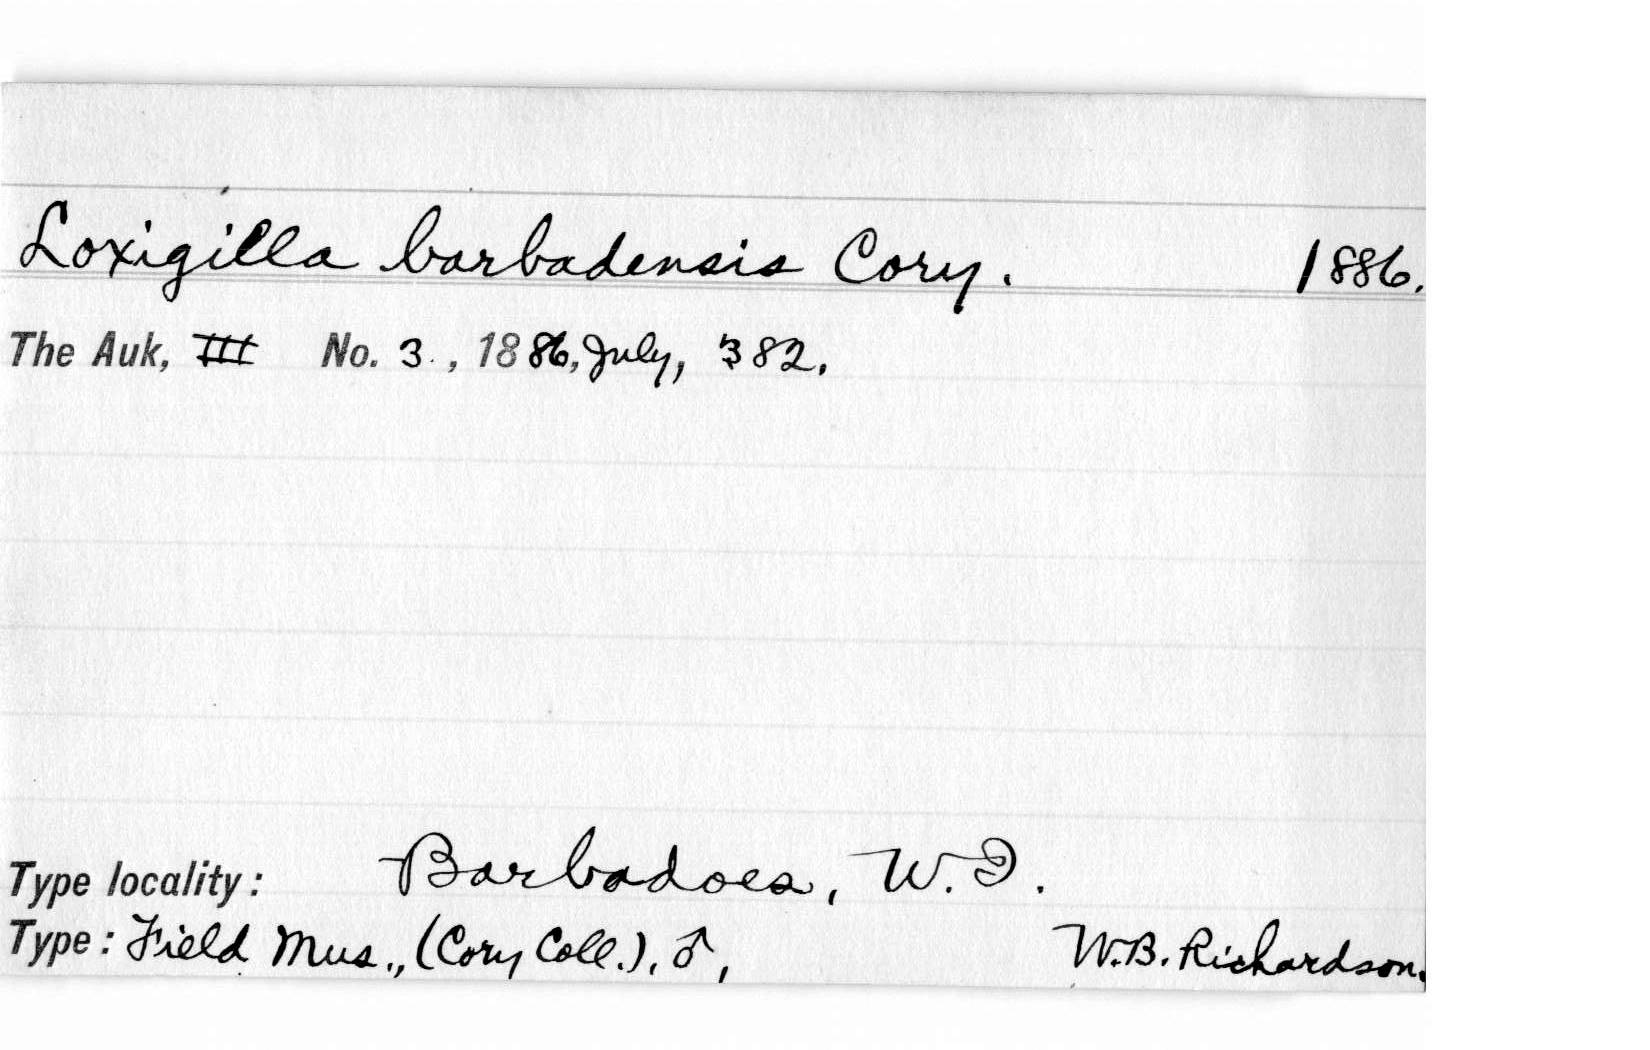 Loxigilla barbadensis Cory. 1886.
The Auk, III No. 3., 1886, July, 382.
Type locality: Barbadoes, W.I.
Type: Field Mus., (Cory Coll.), ♂, W.B. Richardson.